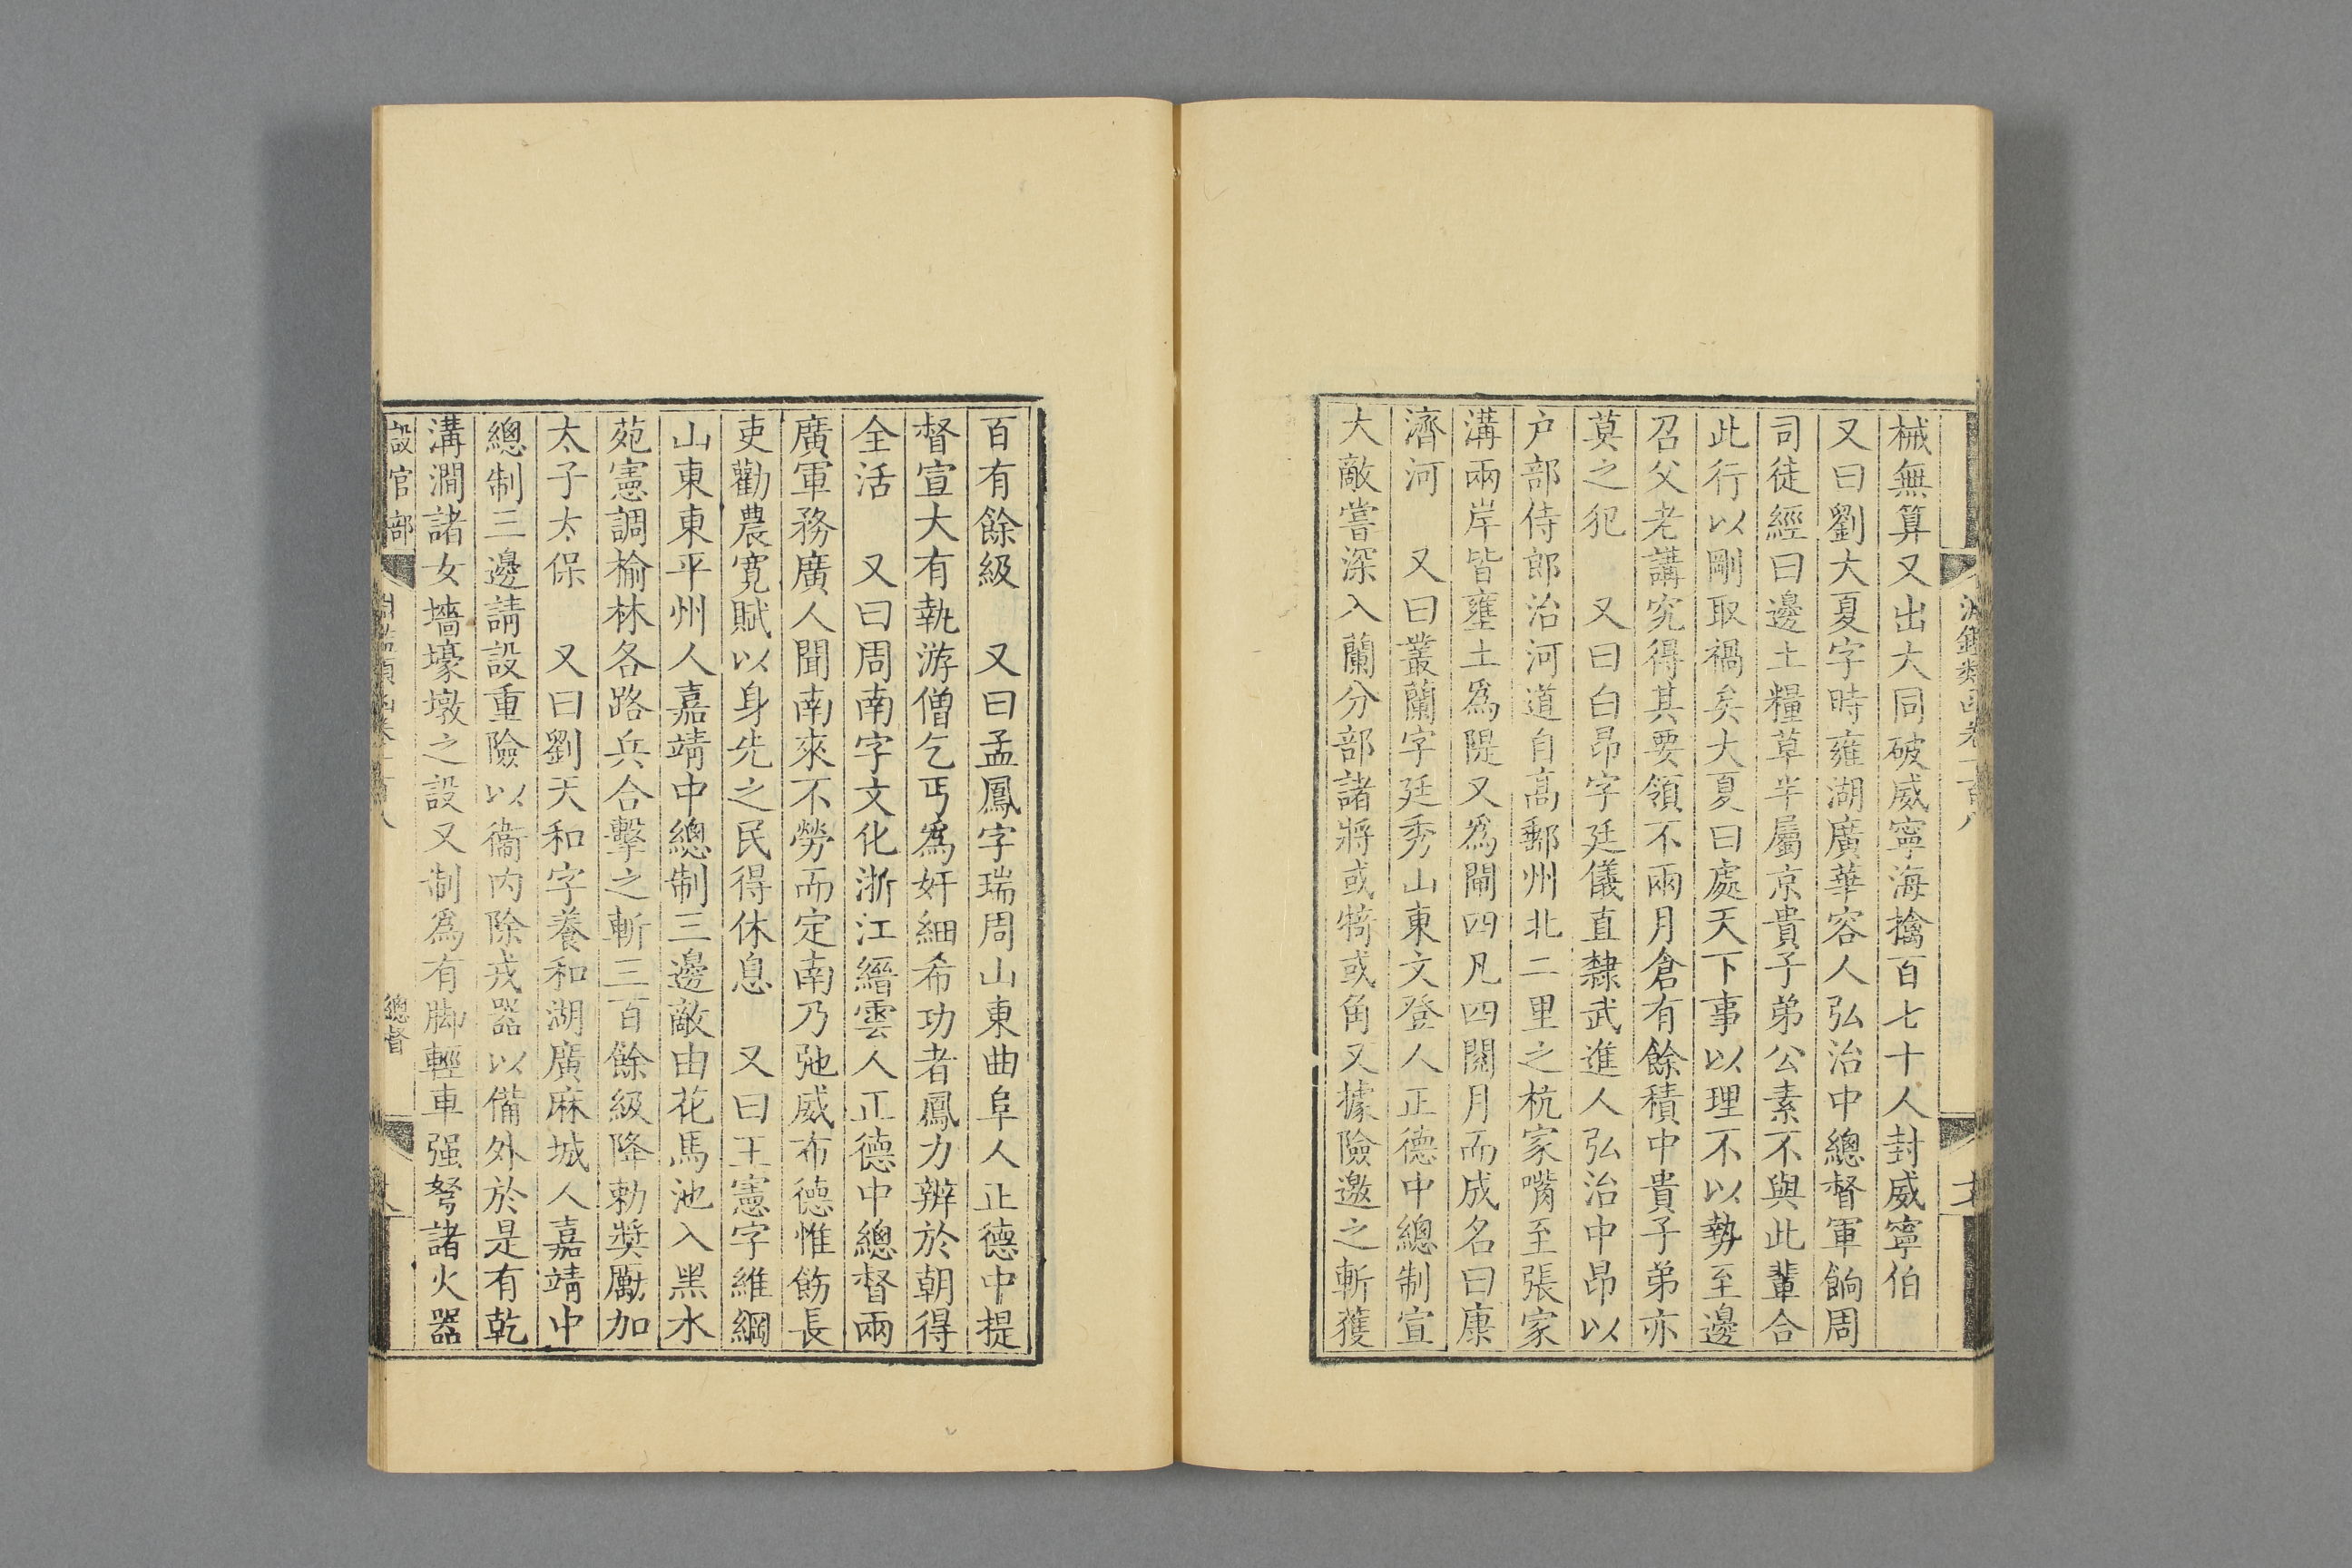 械無算又出大同破威寧海擒百七十人封威寧伯
又曰劉大夏字時雍湖廣華容人弘治中總督軍餉周
司徒經曰邊土糧草半屬京貴子弟公素不與此輩合
此行以剛取禍矣大夏曰處天下事以理不以勢至邊
召父老講究得其要領不兩月倉有餘積中貴子弟亦
莫之犯　又曰白昂字廷儀直隸武進人弘治中昂以
户部侍郎治河道自高郵州北二里之杭家嘴至張家
溝兩岸皆壅土爲隄又爲閘四凡四閱月而成名曰康
濟河　又曰叢蘭字廷秀山東文登人正德中總制宣
大敵嘗深入蘭分部諸將或犄或角又據險邀之斬獲
百有餘級　又曰孟鳳字瑞周山東曲阜人正德中提
督宣大有執游僧乞丐爲奸細希功者鳳力辨於朝得
全活　又曰周南字文化浙江縉雲人正德中總督兩
廣軍務廣人聞南來不勞而定南乃弛威布德惟飭長
吏勸農寛賦以身先之民得休息　又曰王憲字維綱
山東東平州人嘉靖中總制三邊敵由花馬池入黑水
苑憲調榆林各路兵合擊之斬三百餘級降勅奬厲加
太子太保　又曰劉天和字養和湖廣麻城人嘉靖中
總制三邊請設重險以衞内除戎器以備外於是有乾
溝澗諸女墻壕墩之設又制爲有脚輕車强弩諸火器
設官部
總督